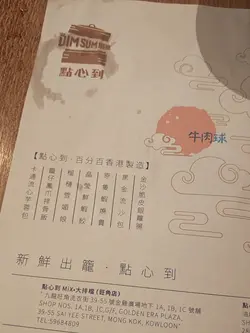 DIM SUM
點心到
牛肉球
【點心到‧百分百香港製造】
黑金流沙包
晶瑩鮮蝦餃
卡通流心芋蓉包
新鮮出籠‧點心到
點心到 MIX+大排檔 (旺角店)
洗衣街 39-55 號 廣場地下 1A, 1B, 1C 號舖
SHOP NOS. 1A,1B, 1C,G/F, GOLDEN ERA PLAZA,
39-55 SAI YEE STREET, MONG KOK, KOWLOON
TEL:59684809